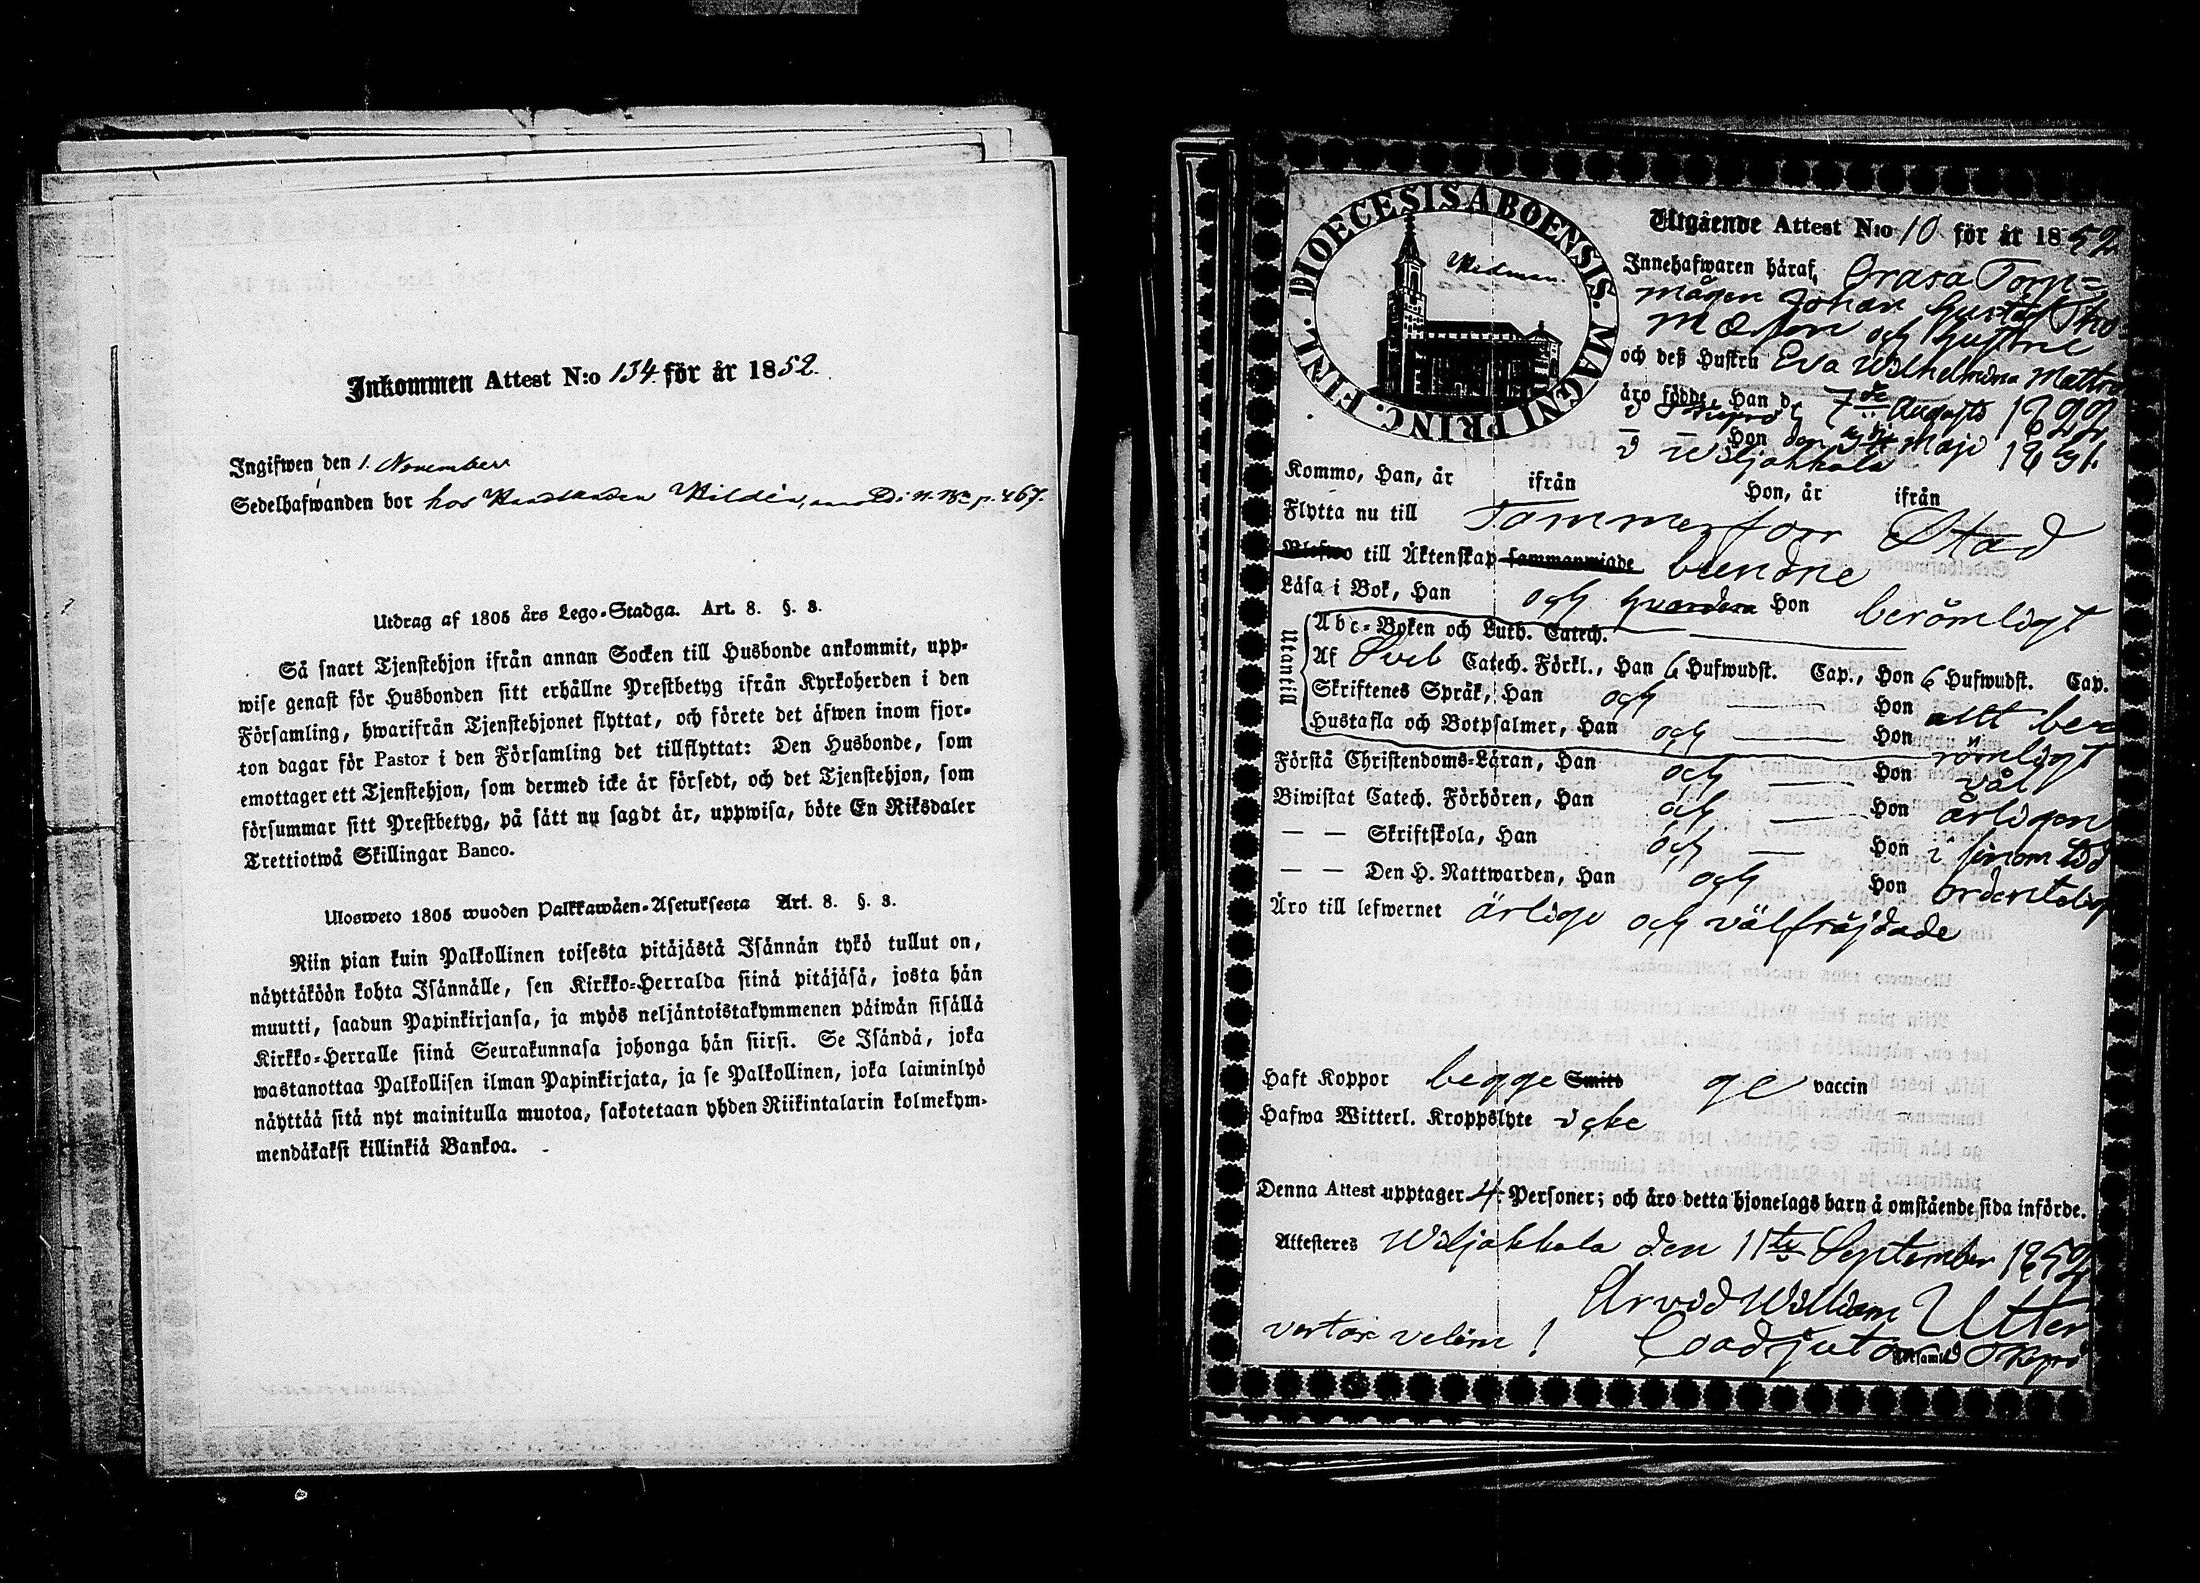 Inkommen Attest N:o 134 för år 1852.
Ingifwen den 1. November
Sedelhafwanden bor hos Wildén, p. 467.
Utdrag af 1805 års Lego-Stadga. Art. 8. §. 3.
Så snart Tjenstehjon ifrån annan Socken till Husbonde ankommit, upp-
wise genast för Husbonden sitt erhållne Prestbetyg ifrån Kyrkoherden i den
Församling, hwarifrån Tjenstehjonet flyttat, och förete det äfwen inom fjor-
ton dagar för Pastor i den Församling det tillflyttat: Den Husbonde, som
emottager ett Tjenstehjon, som dermed icke är försedt, och det Tjenstehjon, som
försummar sitt Prestbetyg, på sätt nu sagdt är, uppwisa, böte En Riksdaler
Trettiotwå Skillingar Banco.
Ulosweto 1805 wuoden Palkkawäen-Asetuksesta Art. 8. §. 3.
Niin pian kuin Palkollinen toisesta pitäjästä Isännän tykö tullut on,
näyttäköön kohta Isännälle, sen Kirkko-Herralda siinä pitäjäsä, josta hän
muutti, saadun Papinkirjansa, ja myös neljäntoistakymmenen päiwän sisällä
Kirkko-Herralle siinä Seurakunnasa johonga hän siirsi. Se Isändä, joka
wastanottaa Palkollisen ilman Papinkirjata, ja se Palkollinen, joka laiminlyö
näyttää sitä nyt mainitulla muotoa, sakotetaan yhden Riikintalarin kolmekym-
mendäkaksi killinkiä Bankoa.
DIOECESIS ABOENSIS. MAGNI PRINC. FINL.
Widman
Utgående Attest N:o 10 för år 1852
Innehafwaren häraf, Orasa Torp-
mågen Johan Gustaf Tho-
masson och Hustru
och deß Hustru Eva Wilhelmina Mattsd
äro födde, Han d. 7de Augusti 1822
i
— Hon den Maji 1831.
i Wiljakkala
Kommo, Han, år ifrån Hon, år ifrån
Flytta nu till Tammerfors Stad
Blefwo till Äktenskap sammanwigde bundne
Läsa i Bok, Han och Hon berömligt
Utantill
Abc-Boken och Luth. Catech.
Af Sveb Catech. Förkl., Han 6 Hufwudst. Cap., Hon 6 Hufwudst. Cap.
Skriftenes Språk, Han och — Hon allt be-
Hustafla och Botpsalmer, Han och — Hon römligt
Förstå Christendoms-Läran, Han och — Hon väl
Biwistat Catech. Förhören, Han och — Hon årligen
— — Skriftskola, Han och — Hon i sinom tid
— — Den H. Nattwarden, Han och Hon ordentelig
Äro till lefwernet ärlige och välfräjdade
Haft Koppor begge Smitt ge vaccin
Hafwa Witterl. Kroppslyte icke
Denna Attest upptager 4. Personer; och äro detta hjonelags barn å omstående sida införde.
Attesteres Wiljakkala den 11te September 1852
Arvid William Utter
vertas velim! Coadjutor i